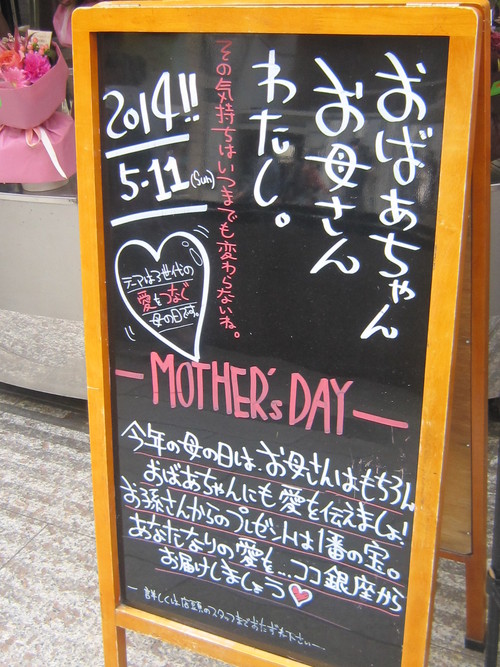 おばあちゃん
お母さん
わたし。
その気持ちはいつまでも変わらないね。
2014!!
5.11(Sun)
テーマは3世代の
愛をつなぐ
母の日です。
—MOTHER'S DAY—
今年の母の日は、お母さんはもちろん
おばあちゃんにも愛を伝えましょ!
お孫さんからのプレゼントは1番の宝。
あなたなりの愛を…ココ銀座から
お届けしましょう♡
— 詳しくは店頭のスタッフまでおたずね下さい—